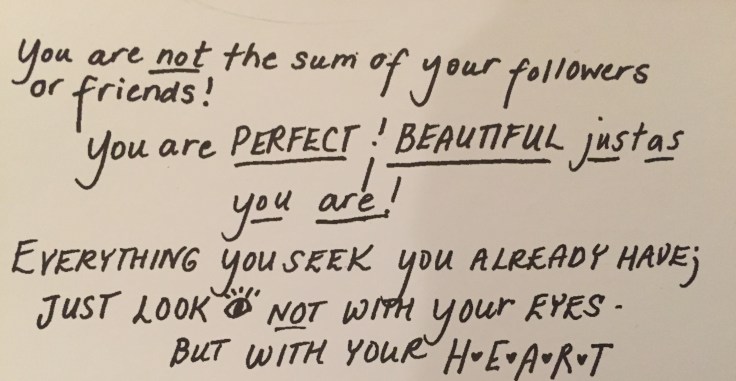 You are not the sum of your followers
or friends!
You are PERFECT! BEAUTIFUL just as
you are!
EVERYTHING you SEEK you ALREADY HAVE;
JUST LOOK NOT WITH your EYES -
BUT WITH YOUR H♥E♥A♥R♥T